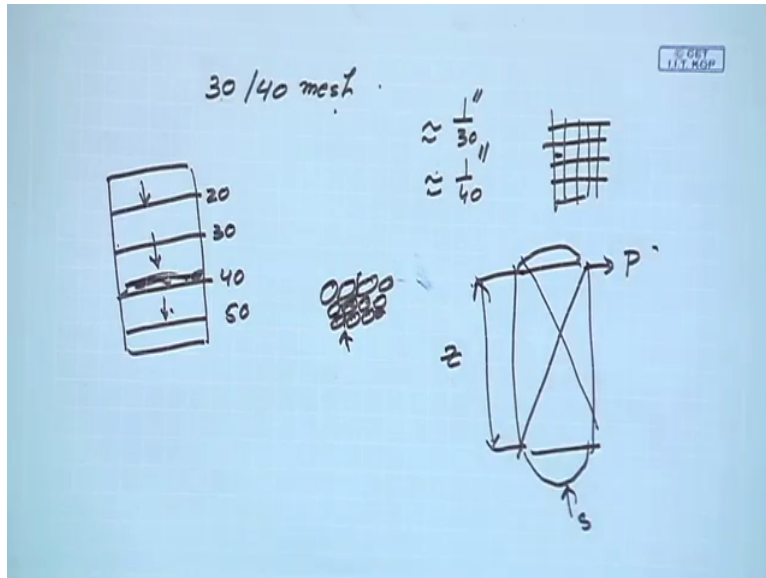 © CET
I.I.T. KGP
30/40 mesh
≈ 1/30"
≈ 1/40"
20
30
40
50
P
Z
S